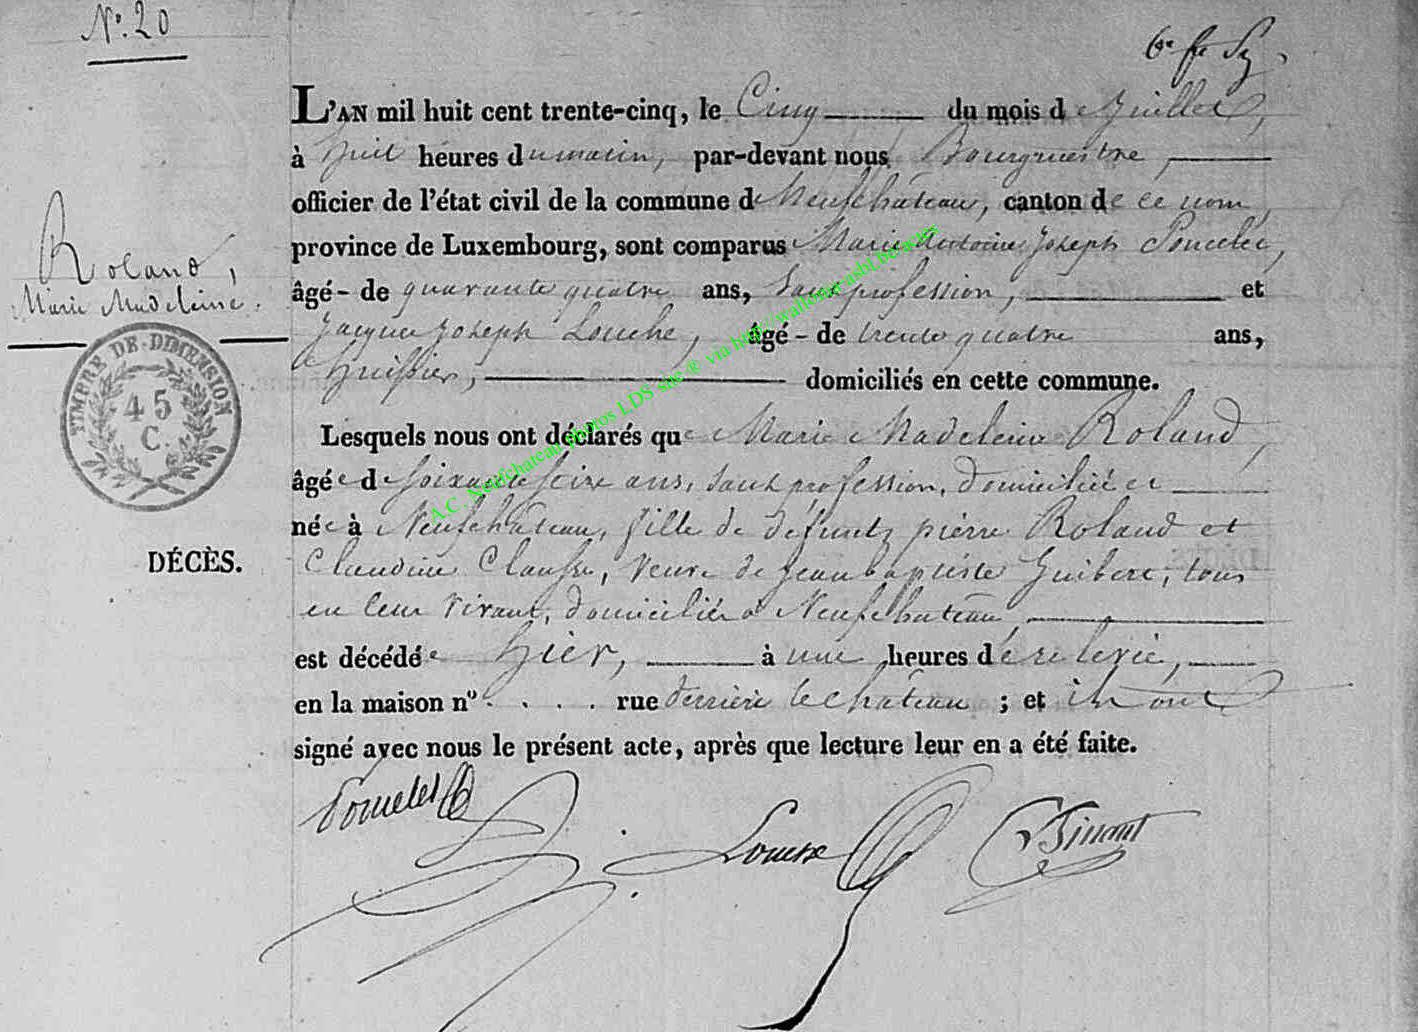 N°. 20
L'AN mil huit cent trente-cinq, le Cinq du mois de Juillet,
à huit heures du matin, par-devant nous Bourgmestre,
officier de l'état civil de la commune de Neufchâteau, canton de ce nom,
province de Luxembourg, sont comparus Marie Antoine Joseph Poncelet,
âgé - de quarante quatre ans, Sans profession, et
Jacques Joseph Louche, âgé - de trente quatre ans,
huissier, domiciliés en cette commune.
Roland,
Marie Madeleine.
TIMBRE DE DIMENSION
45
C.
DÉCÈS.
Lesquels nous ont déclarés que Marie Madeleine Roland,
âgée de soixante seize ans, sans profession, domiciliée et
née à Neufchâteau, fille de défunts pierre Roland et
Claudine Clausse, veuve de jean baptiste Guibert, tous
en leur vivant, domiciliés à Neufchâteau,
est décédée hier, à une heures de relevée,
en la maison n° . . . . rue derrière le château ; et ils ont
signé avec nous le présent acte, après que lecture leur en a été faite.
Poncelet
Louche
A.C. Neufchateau photos LDS site ® via http://wallonia-asbl.be/actes